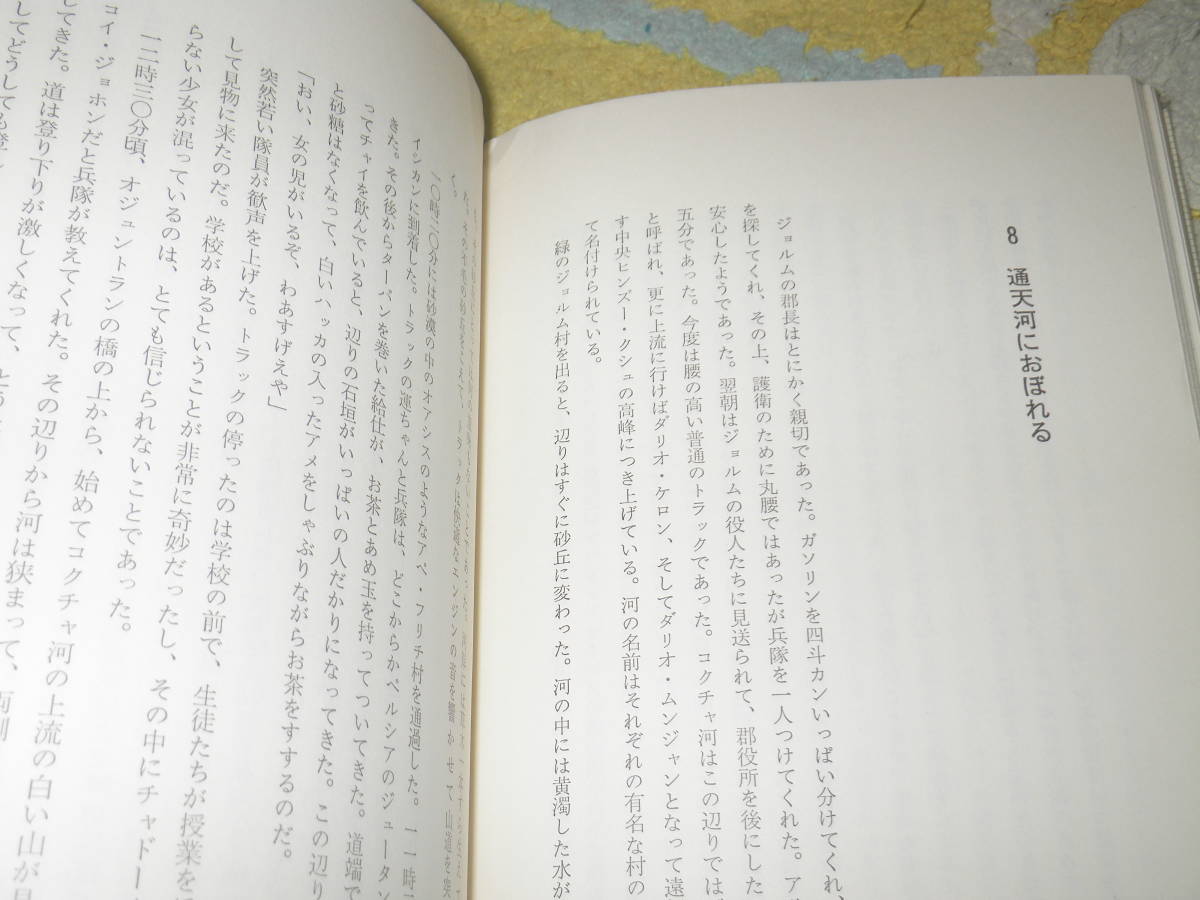 8 通天河におぼれる
ジョルムの郡長はとにかく親切であった。ガソリンを四斗カンいっぱい分けてくれ、
を探してくれ、その上、護衛のために丸腰ではあったが兵隊を一人つけてくれた。ア
安心したようであった。翌朝はジョルムの役人たちに見送られて、郡役所を後にした
五分であった。今度は腰の高い普通のトラックであった。コクチャ河はこの辺りでは
と呼ばれ、更に上流に行けばダリオ・ケロン、そしてダリオ・ムンジャンとなって遠
す中央ヒンズー・クシュの高峰につき上げている。河の名前はそれぞれの有名な村の
て名付けられている。
緑のジョルム村を出ると、辺りはすぐに砂丘に変わった。河の中には黄濁した水が
く。
一〇時二〇分には砂漠の中のオアシスのようなアベ・フリチ村を通過した。一一時
イシカンに到着した。トラックの運ちゃんと兵隊は、どこからかペルシアのジュータン
きた。その後からターバンを巻いた給仕が、お茶とあめ玉を持ってついてきた。道端で
ってチャイを飲んでいると、辺りの石垣がいっぱいの人だかりになってきた。この辺り
と砂糖はなくなって、白いハッカの入ったアメをしゃぶりながらお茶をすするのだ。
「おい、女の児がいるぞ、わあすげえや」
突然若い隊員が歓声を上げた。トラックの停ったのは学校の前で、生徒たちが授業を
して見物に来たのだ。学校があるということが非常に奇妙だったし、その中にチャドー
らない少女が混っているのは、とても信じられないことであった。
一二時三〇分頃、オジュントランの橋の上から、始めてコクチャ河の上流の白い山が見
コイ・ジョホンだと兵隊が教えてくれた。その辺りから河は狭まって、両側
してきた。道は登り下りが激しくなって、
してどうしても登